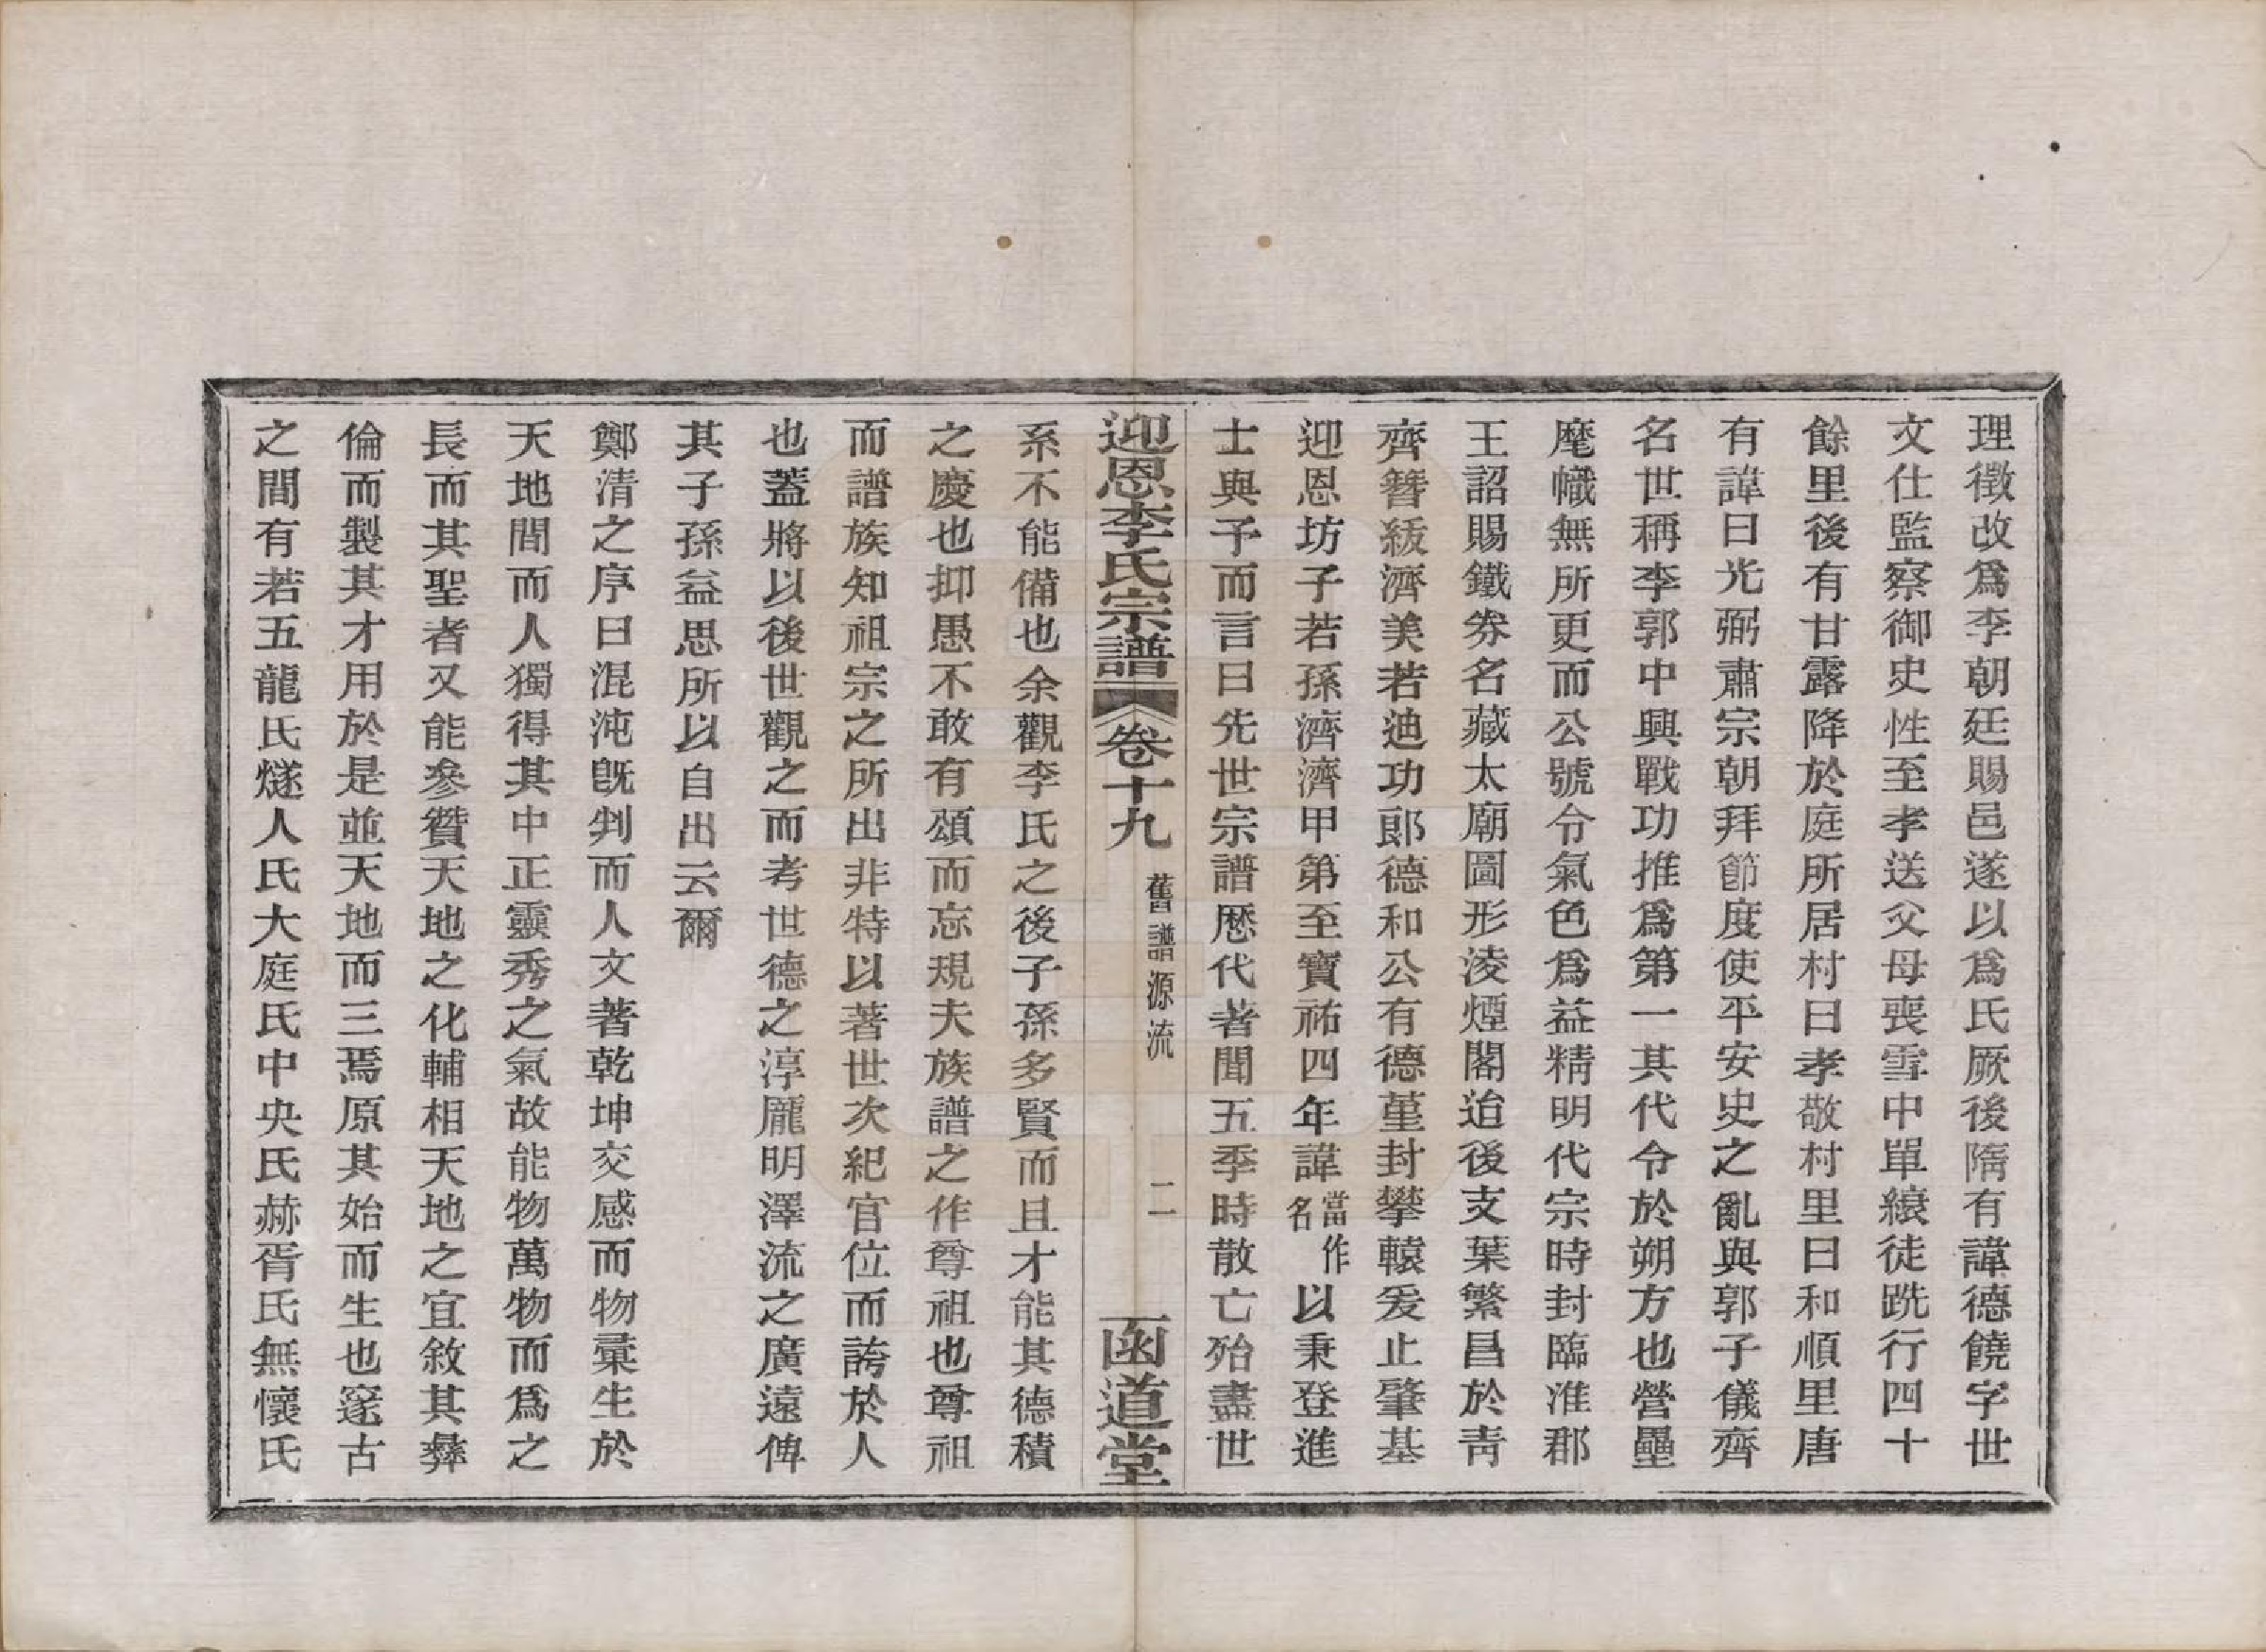 理徵改爲李朝廷賜邑遂以爲氏厥後隋有諱德饒字世
文仕監察御史性至孝送父母喪雪中單縗徒跣行四十
餘里後有甘露降於庭所居村曰孝敬村里曰和順里唐
有諱曰光弼肅宗朝拜節度使平安史之亂與郭子儀齊
名世稱李郭中興戰功推爲第一其代令於朔方也營壘
麾幟無所更而公號令氣色爲益精明代宗時封臨淮郡
王詔賜鐵券名藏太廟圖形淩煙閣迨後支葉繁昌於靑
齊簪紱濟美若迪功郎德和公有德菫封攀轅爰止肇基
迎恩坊子若孫濟濟甲第至寶祐四年諱當作名以秉登進
士與予而言曰先世宗譜歷代著聞五季時散亡殆盡世
迎恩李氏宗譜 卷十九 舊譜源流 二 函道堂
系不能備也余觀李氏之後子孫多賢而且才能其德積
之慶也抑愚不敢有頌而忘規夫族譜之作尊祖也尊祖
而譜族知祖宗之所出非特以著世次紀官位而誇於人
也蓋將以後世觀之而考世德之淳龐明澤流之廣遠俾
其子孫益思所以自出云爾
鄭清之序曰混沌旣判而人文著乾坤交感而物彙生於
天地間而人獨得其中正靈秀之氣故能物萬物而爲之
長而其聖者又能參贊天地之化輔相天地之宜敘其彝
倫而製其才用於是並天地而三焉原其始而生也邃古
之間有若五龍氏燧人氏大庭氏中央氏赫胥氏無懷氏